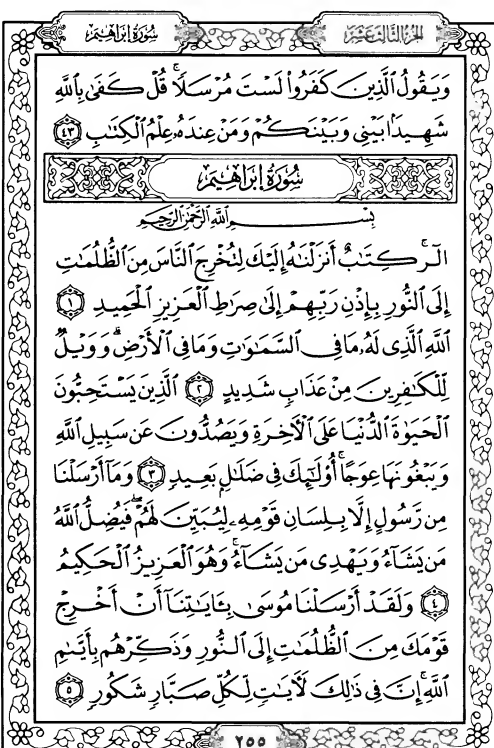 سُورَةُ إِبْرَاهِيمَ
الجُزْءُ الثَّالِثَ عَشَرَ
وَيَقُولُ ٱلَّذِينَ كَفَرُوا۟ لَسْتَ مُرْسَلًا ۚ قُلْ كَفَىٰ بِٱللَّهِ
شَهِيدًۢا بَيْنِى وَبَيْنَكُمْ وَمَنْ عِندَهُۥ عِلْمُ ٱلْكِتَـٰبِ ٤٣
سُورَةُ إِبْرَاهِيمَ
بِسْمِ ٱللَّهِ ٱلرَّحْمَـٰنِ ٱلرَّحِيمِ
الٓر ۚ كِتَـٰبٌ أَنزَلْنَـٰهُ إِلَيْكَ لِتُخْرِجَ ٱلنَّاسَ مِنَ ٱلظُّلُمَـٰتِ
إِلَى ٱلنُّورِ بِإِذْنِ رَبِّهِمْ إِلَىٰ صِرَٰطِ ٱلْعَزِيزِ ٱلْحَمِيدِ ١
ٱللَّهِ ٱلَّذِى لَهُۥ مَا فِى ٱلسَّمَـٰوَٰتِ وَمَا فِى ٱلْأَرْضِ ۗ وَوَيْلٌ
لِّلْكَـٰفِرِينَ مِنْ عَذَابٍ شَدِيدٍ ٢ ٱلَّذِينَ يَسْتَحِبُّونَ
ٱلْحَيَوٰةَ ٱلدُّنْيَا عَلَى ٱلْـَٔاخِرَةِ وَيَصُدُّونَ عَن سَبِيلِ ٱللَّهِ
وَيَبْغُونَهَا عِوَجًا ۚ أُو۟لَـٰٓئِكَ فِى ضَلَـٰلٍۭ بَعِيدٍ ٣ وَمَآ أَرْسَلْنَا
مِن رَّسُولٍ إِلَّا بِلِسَانِ قَوْمِهِۦ لِيُبَيِّنَ لَهُمْ ۖ فَيُضِلُّ ٱللَّهُ
مَن يَشَآءُ وَيَهْدِى مَن يَشَآءُ ۚ وَهُوَ ٱلْعَزِيزُ ٱلْحَكِيمُ
٤ وَلَقَدْ أَرْسَلْنَا مُوسَىٰ بِـَٔايَـٰتِنَآ أَنْ أَخْرِجْ
قَوْمَكَ مِنَ ٱلظُّلُمَـٰتِ إِلَى ٱلنُّورِ وَذَكِّرْهُم بِأَيَّىٰمِ
ٱللَّهِ ۚ إِنَّ فِى ذَٰلِكَ لَـَٔايَـٰتٍ لِّكُلِّ صَبَّارٍ شَكُورٍ ٥
٢٥٥